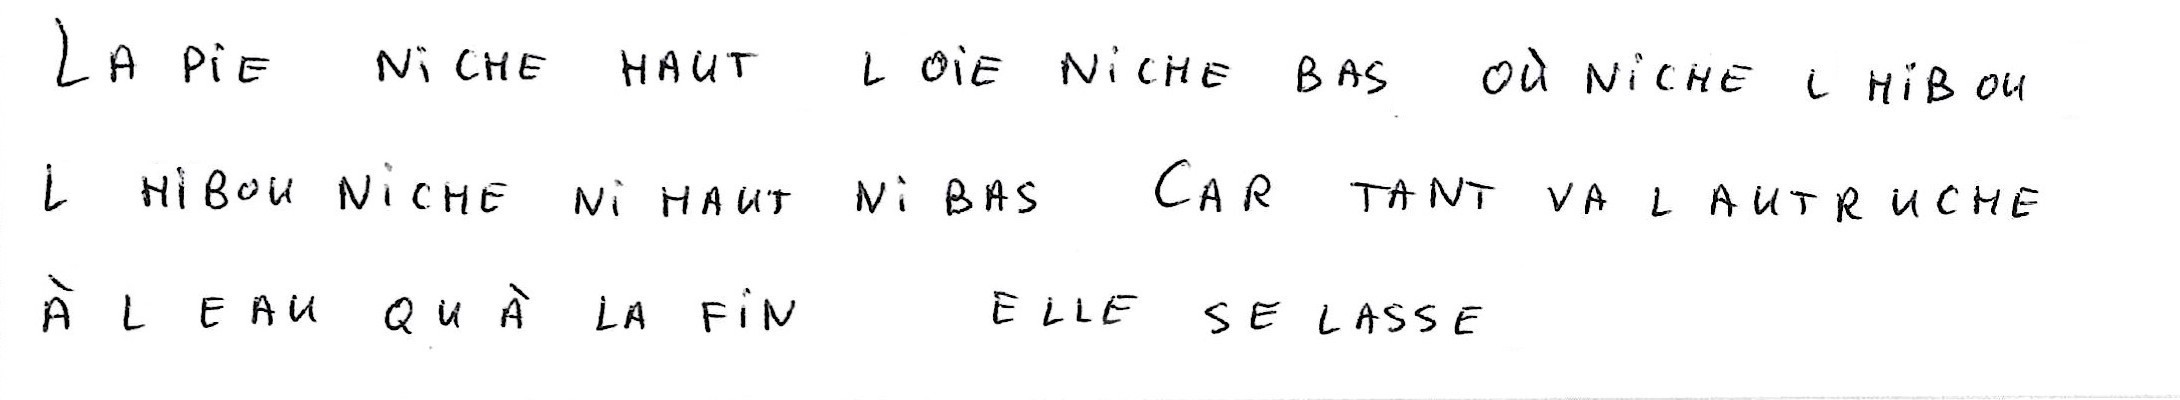 LA PIE NICHE HAUT L OIE NICHE BAS OÙ NICHE L HIBOU
L HIBOU NICHE NI HAUT NI BAS CAR TANT VA L AUTRUCHE
À L EAU QU À LA FIN ELLE SE LASSE